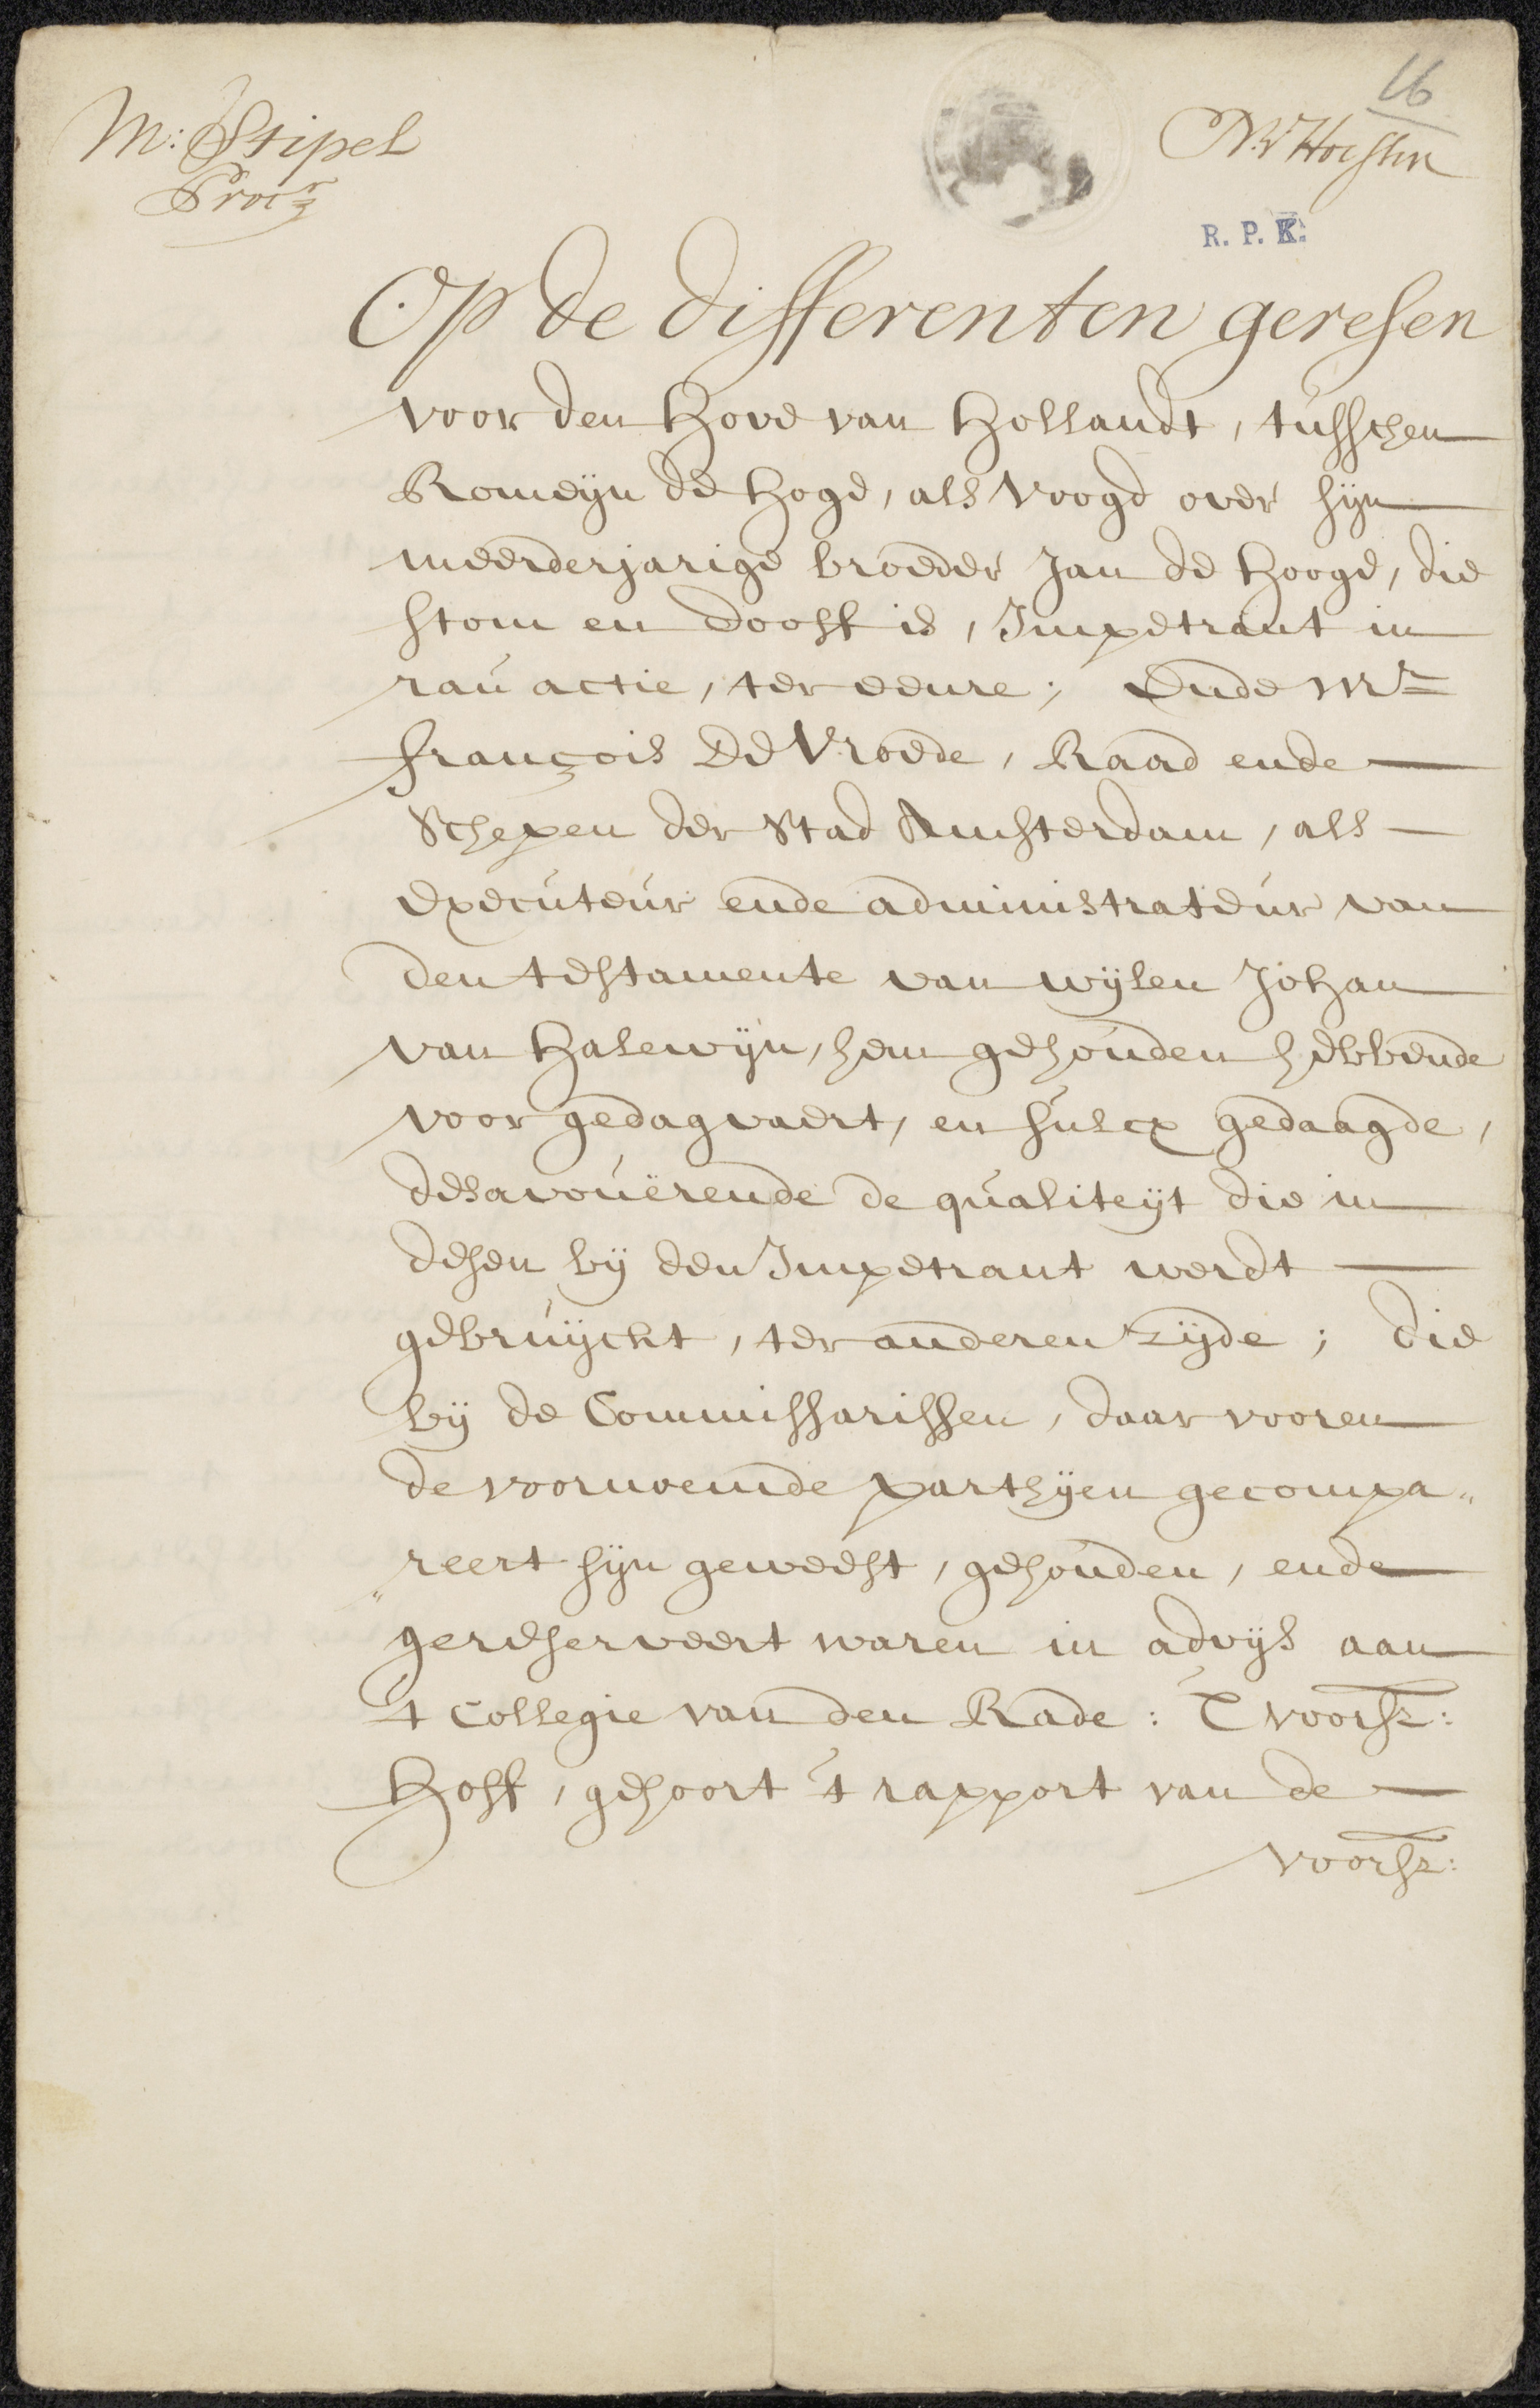 16
M: Stipel
Proc:r
R. P. K.
Op de differenten geresen
voor den Hove van Hollandt, tusschen
Romeyn de Hoge, als Voogd over sijn
meerderjarige broeder Jan de Hooge, die
stom en dooff is, Impetrant in
rau actie, ter eenre; Ende Mr
François De Vroede, Raad ende
Schepen der Stad Amsterdam, als
executeur ende administrateur van
den testamente van wijlen Johan
van Halewijn, hem gehouden hebbende
voor gedagvaert, en sulcx gedaagde,
desavouërende de qualiteijt die in
desen bij den Impetrant werdt
gebruijckt, ter anderen zijde; die
bij de Commissarissen, daar vooren
de voornoemde parthijen gecompa„
„reert sijn geweest, gehouden, ende
gereserveert waren in advijs aan
't Collegie van den Rade: 'T voorsz:
Hoff, gehoort 't rapport van de
voorsz: